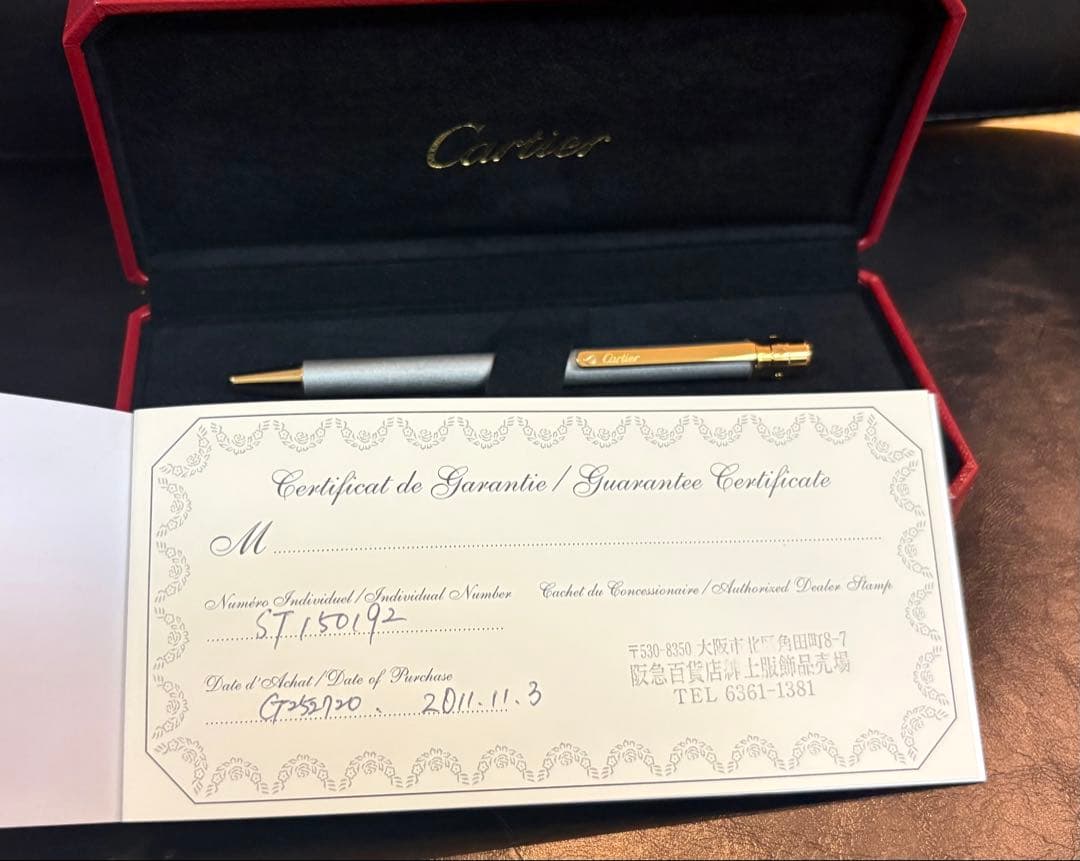 Cartier
Cartier
Certificat de Garantie / Guarantee Certificate
M
Numéro Individuel / Individual Number
ST150192
Cachet du Concessionaire / Authorized Dealer Stamp
〒530-8350 大阪市北区角田町8-7
阪急百貨店 上服飾品売場
TEL 6361-1381
Date d'Achat / Date of Purchase
2011.11.3